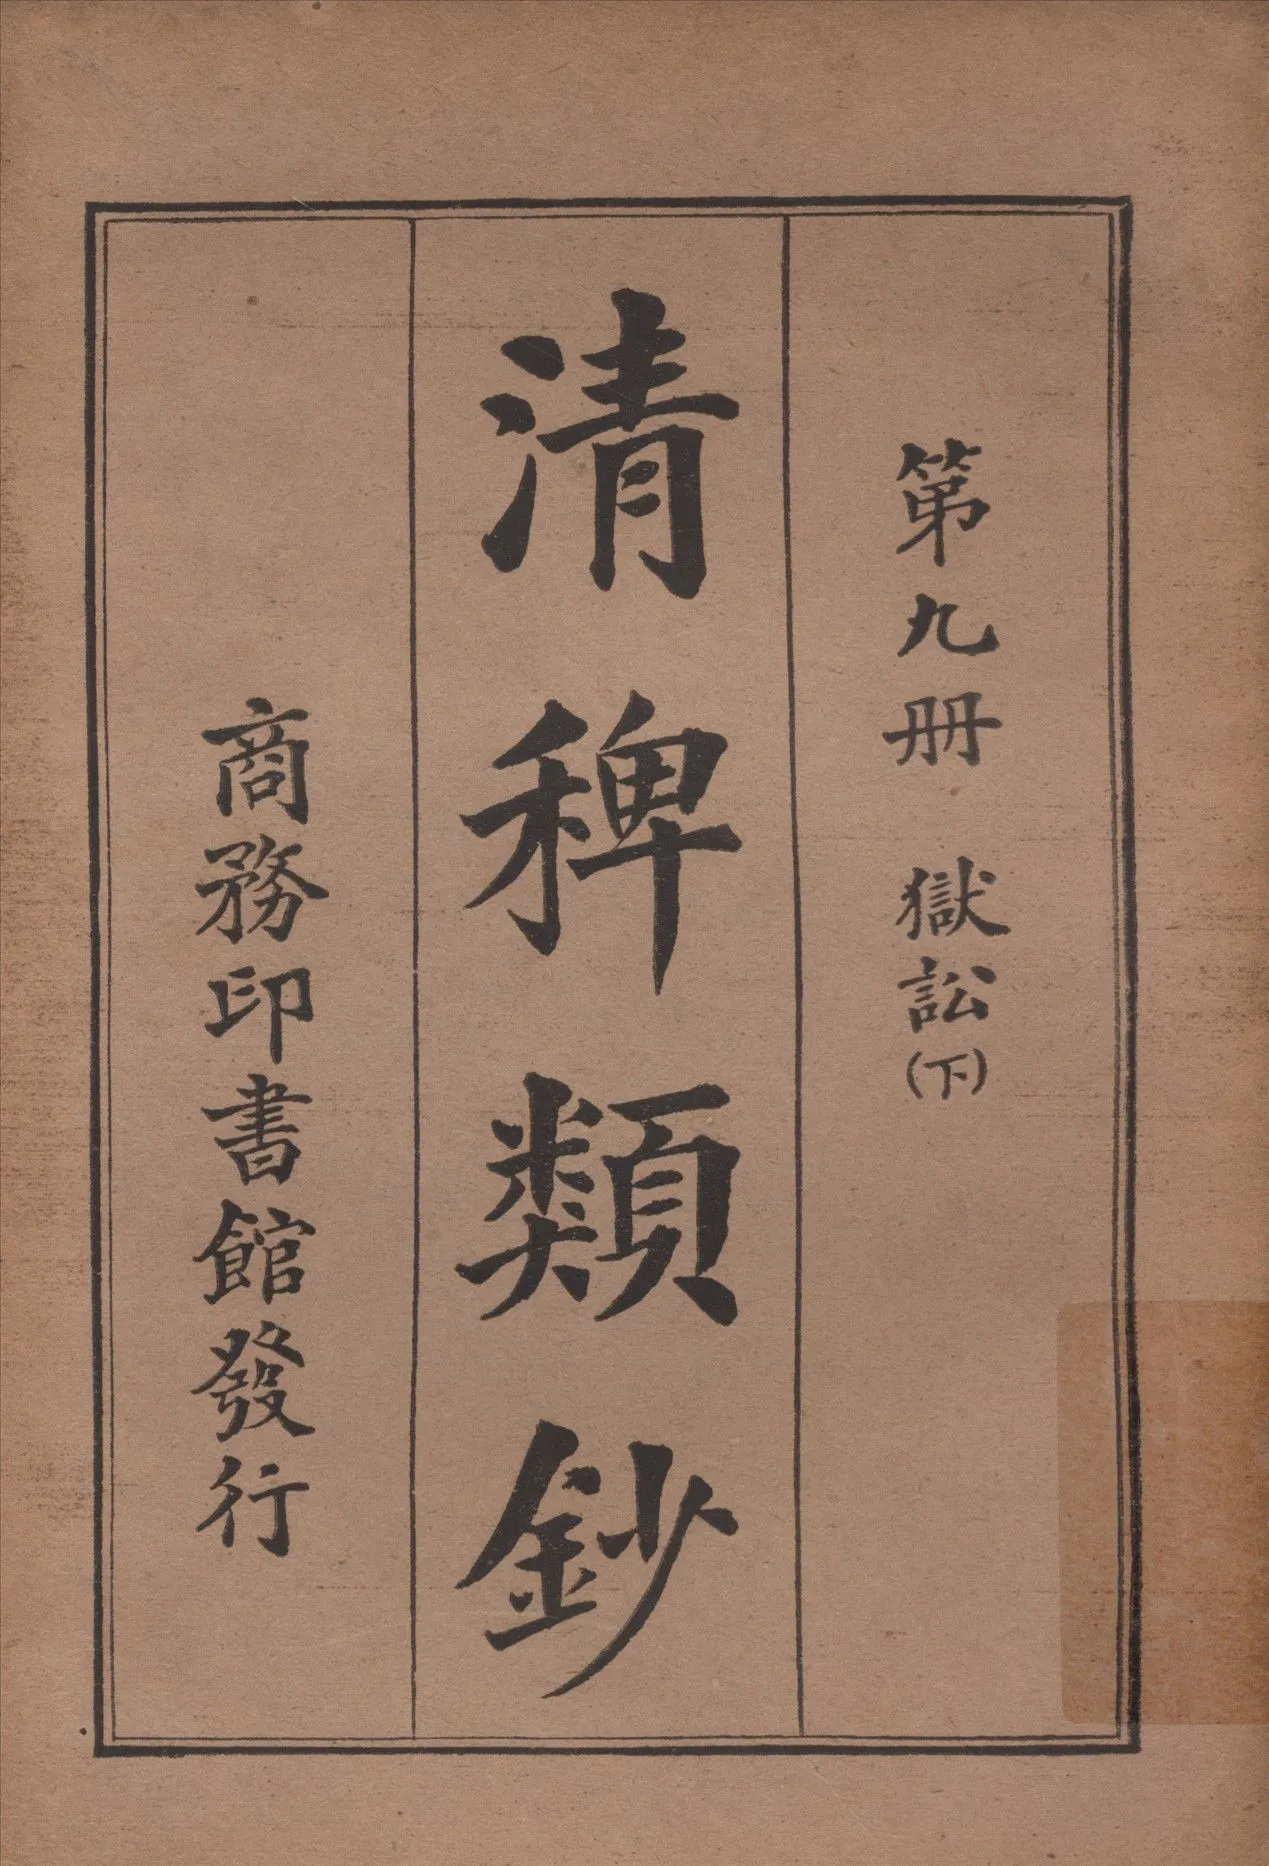 第九册 獄訟(下)
清稗類鈔
商務印書館發行